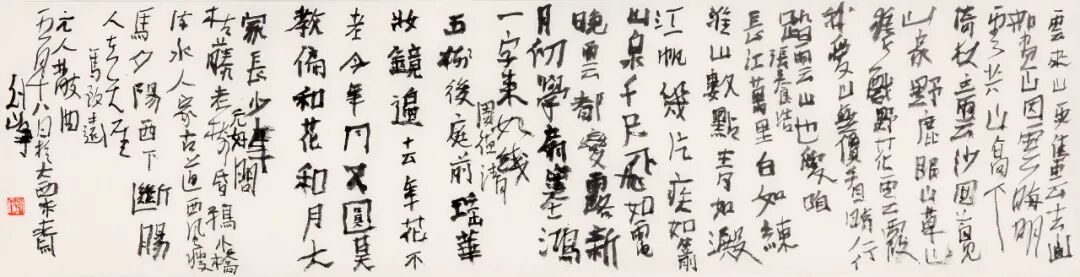 雲来山更佳雲去山
如画山因雲晦明
雲共山高下
倚杖立雲沙回首見
山家野鹿眠山草山
猿戲野花雲霞
我愛山無價看時行
踏雲山也愛咱
張養浩
長江萬里白如練
淮山數點青如澱
江帆幾片疾如箭
山泉千尺飛如電
晚雲都變露新
月初學扇塞鴻
一字来如线
周德清
玉樹後庭前瑶華
妝鏡邊去年花不
老今年月又圓莫
教偏和花和月大
家長少年
元好問
枯藤老樹昏鴉小橋
流水人家古道西風瘦
馬夕陽西下斷腸
人在天涯
馬致遠
元人散曲
五月十八日於大西齋